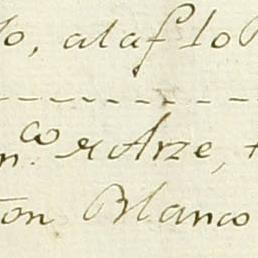 lo, alaf lo
n.co de Arze, 
ton Blanco